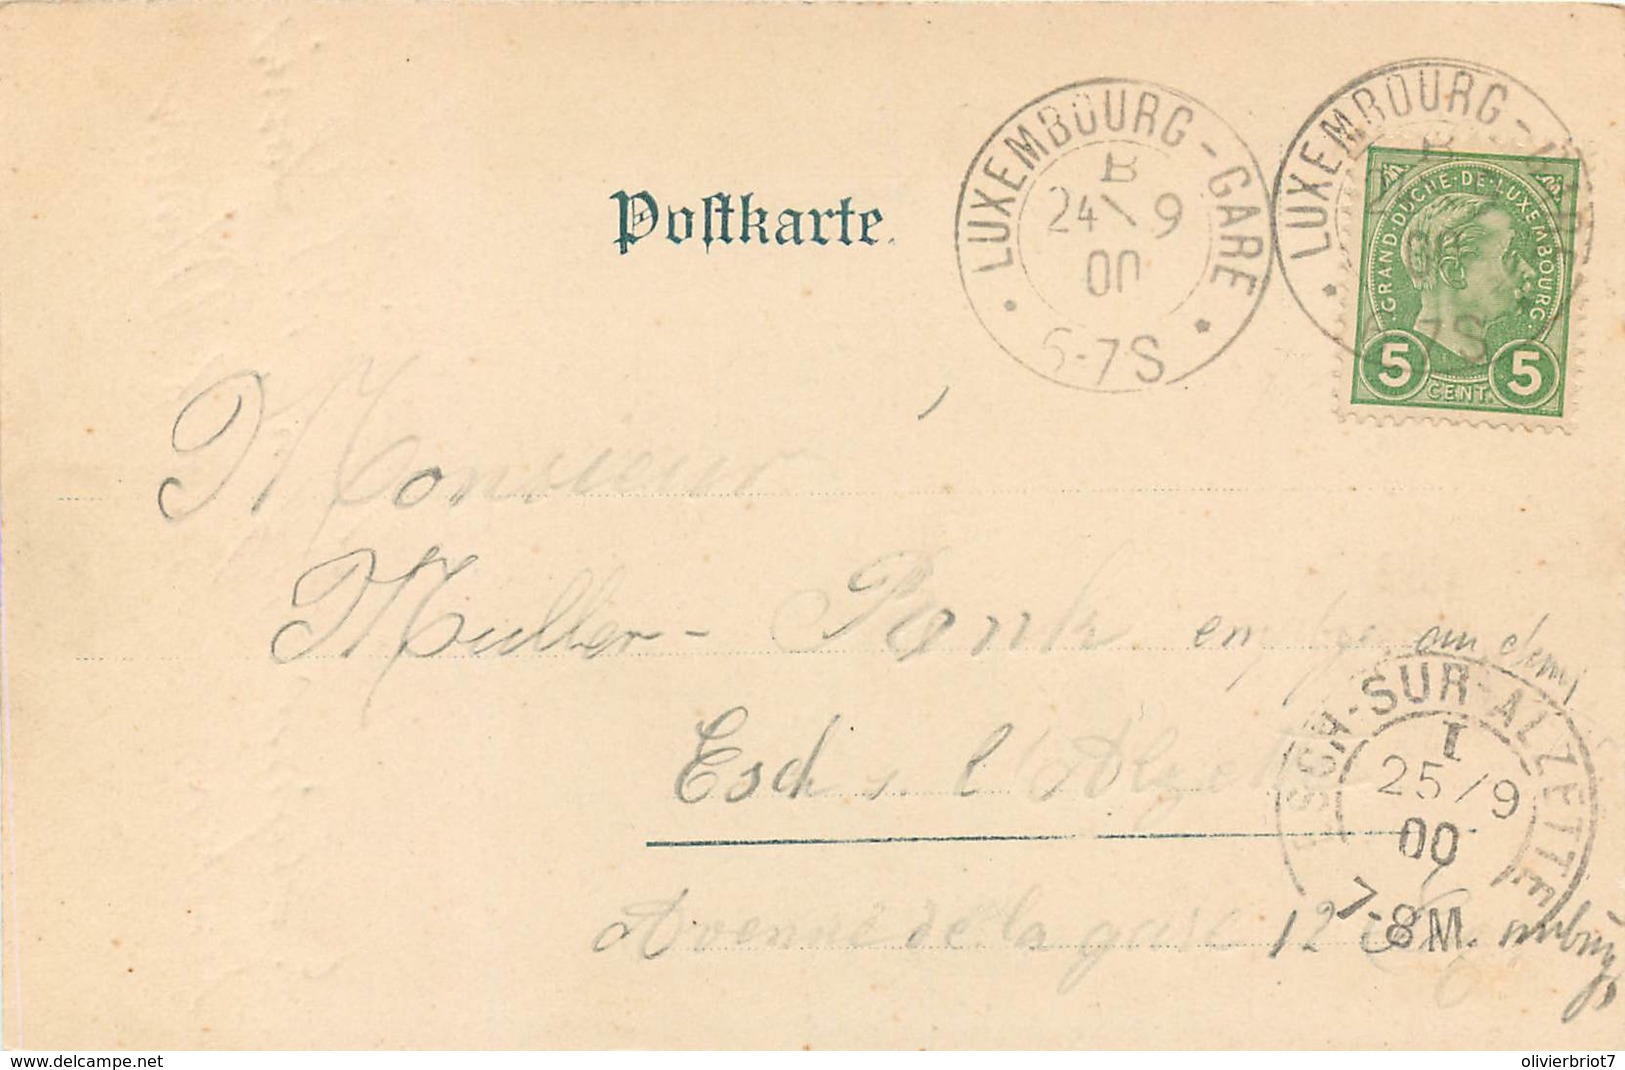 LUXEMBOURG-GARE
B
24 \ 9
00
6-7S
LUXEMBOURG-GARE
GRAND-DUCHE-DE-LUXEMBOURG
5 CENT. 5
Postkarte
Monsieur
Muller-
Esch s. l'Alzette
ESCH-SUR-ALZETTE
I
25/9
00
7-8M
Avenue de la gare 12
www.delcampe.net
olivierbriot7